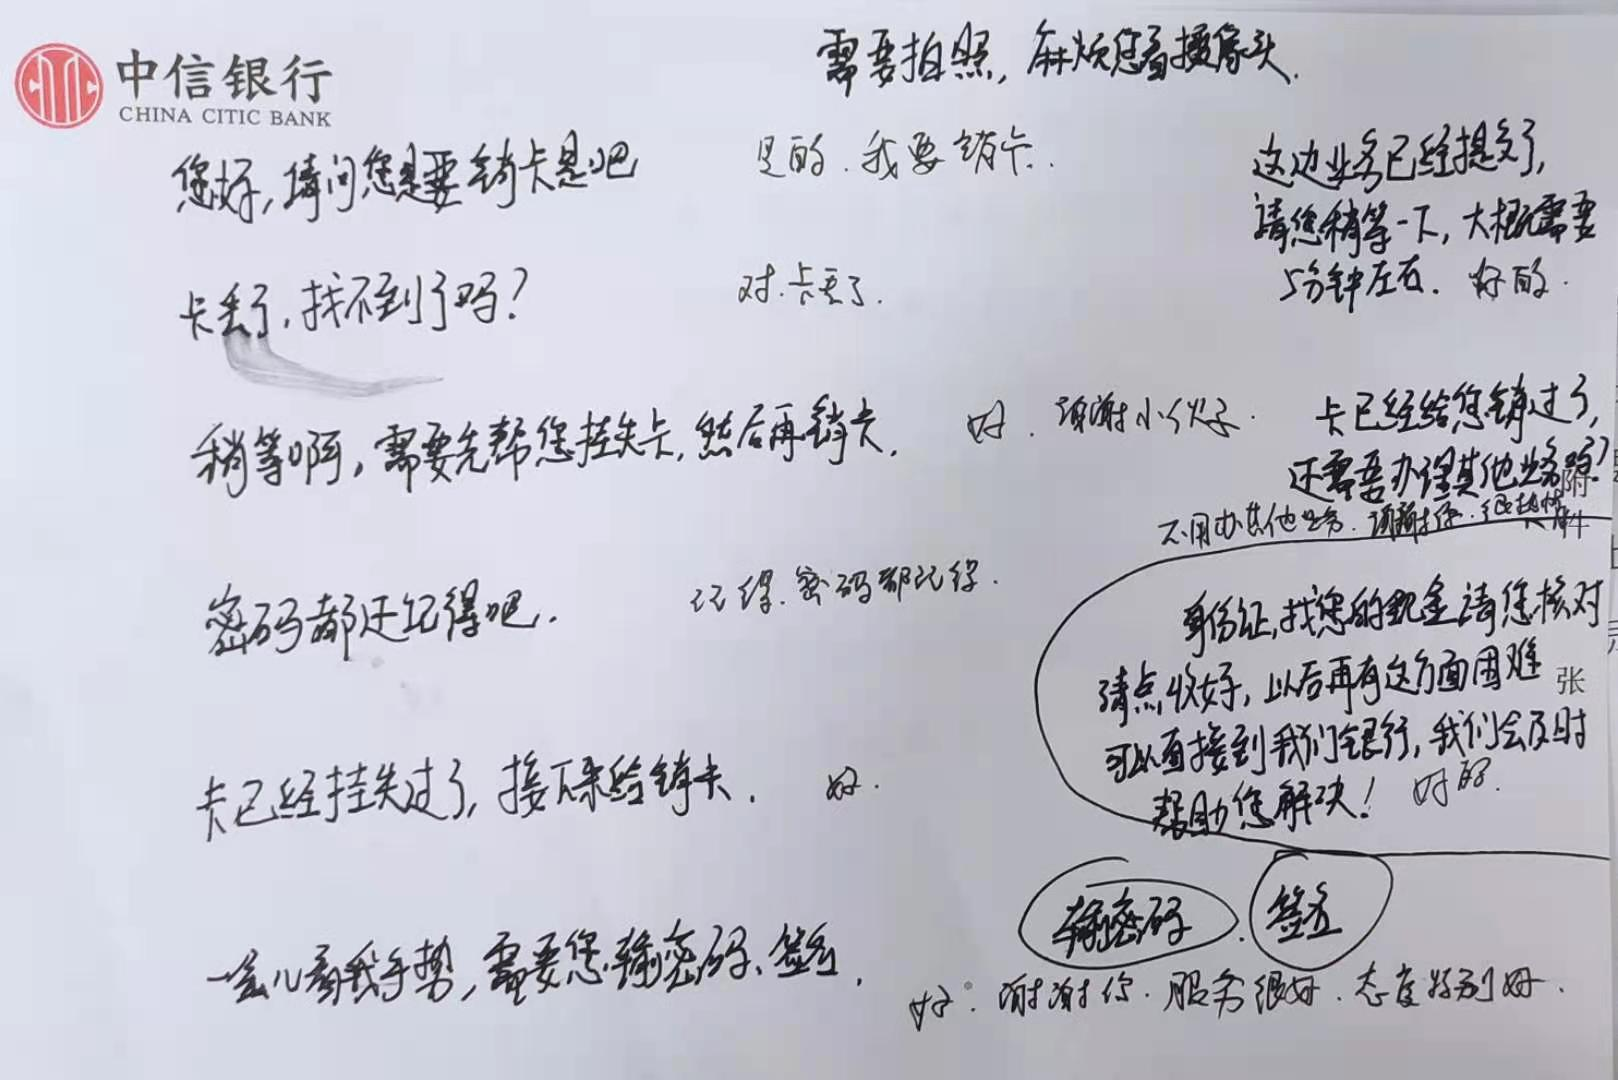 中信银行
CHINA CITIC BANK
需要拍照，麻烦您看摄像头.
您好，请问您是要销卡是吧
是的.我要销卡.
卡丢了，找不到了吗？
对.卡丢了.
稍等啊，需要先帮您挂失卡，然后再销卡.
好.谢谢小伙子.
密码都还记得吧.
记得.密码都记得.
卡已经挂失过了，接下来给销卡.
好.
一会儿看我手势，需要您输密码、签名.
好.谢谢你.服务很好.态度特别好.
这边业务已经提交了，
请您稍等一下，大概需要
5分钟左右.好的.
卡已经给您销过了，
还需要办理其他业务吗？
不用办其他业务.谢谢你.很热情
身份证，找您的现金请您核对
清点收好，以后再有这方面困难
可以直接到我们银行，我们会及时
帮助您解决！好的.
输密码.签名
附
件
张